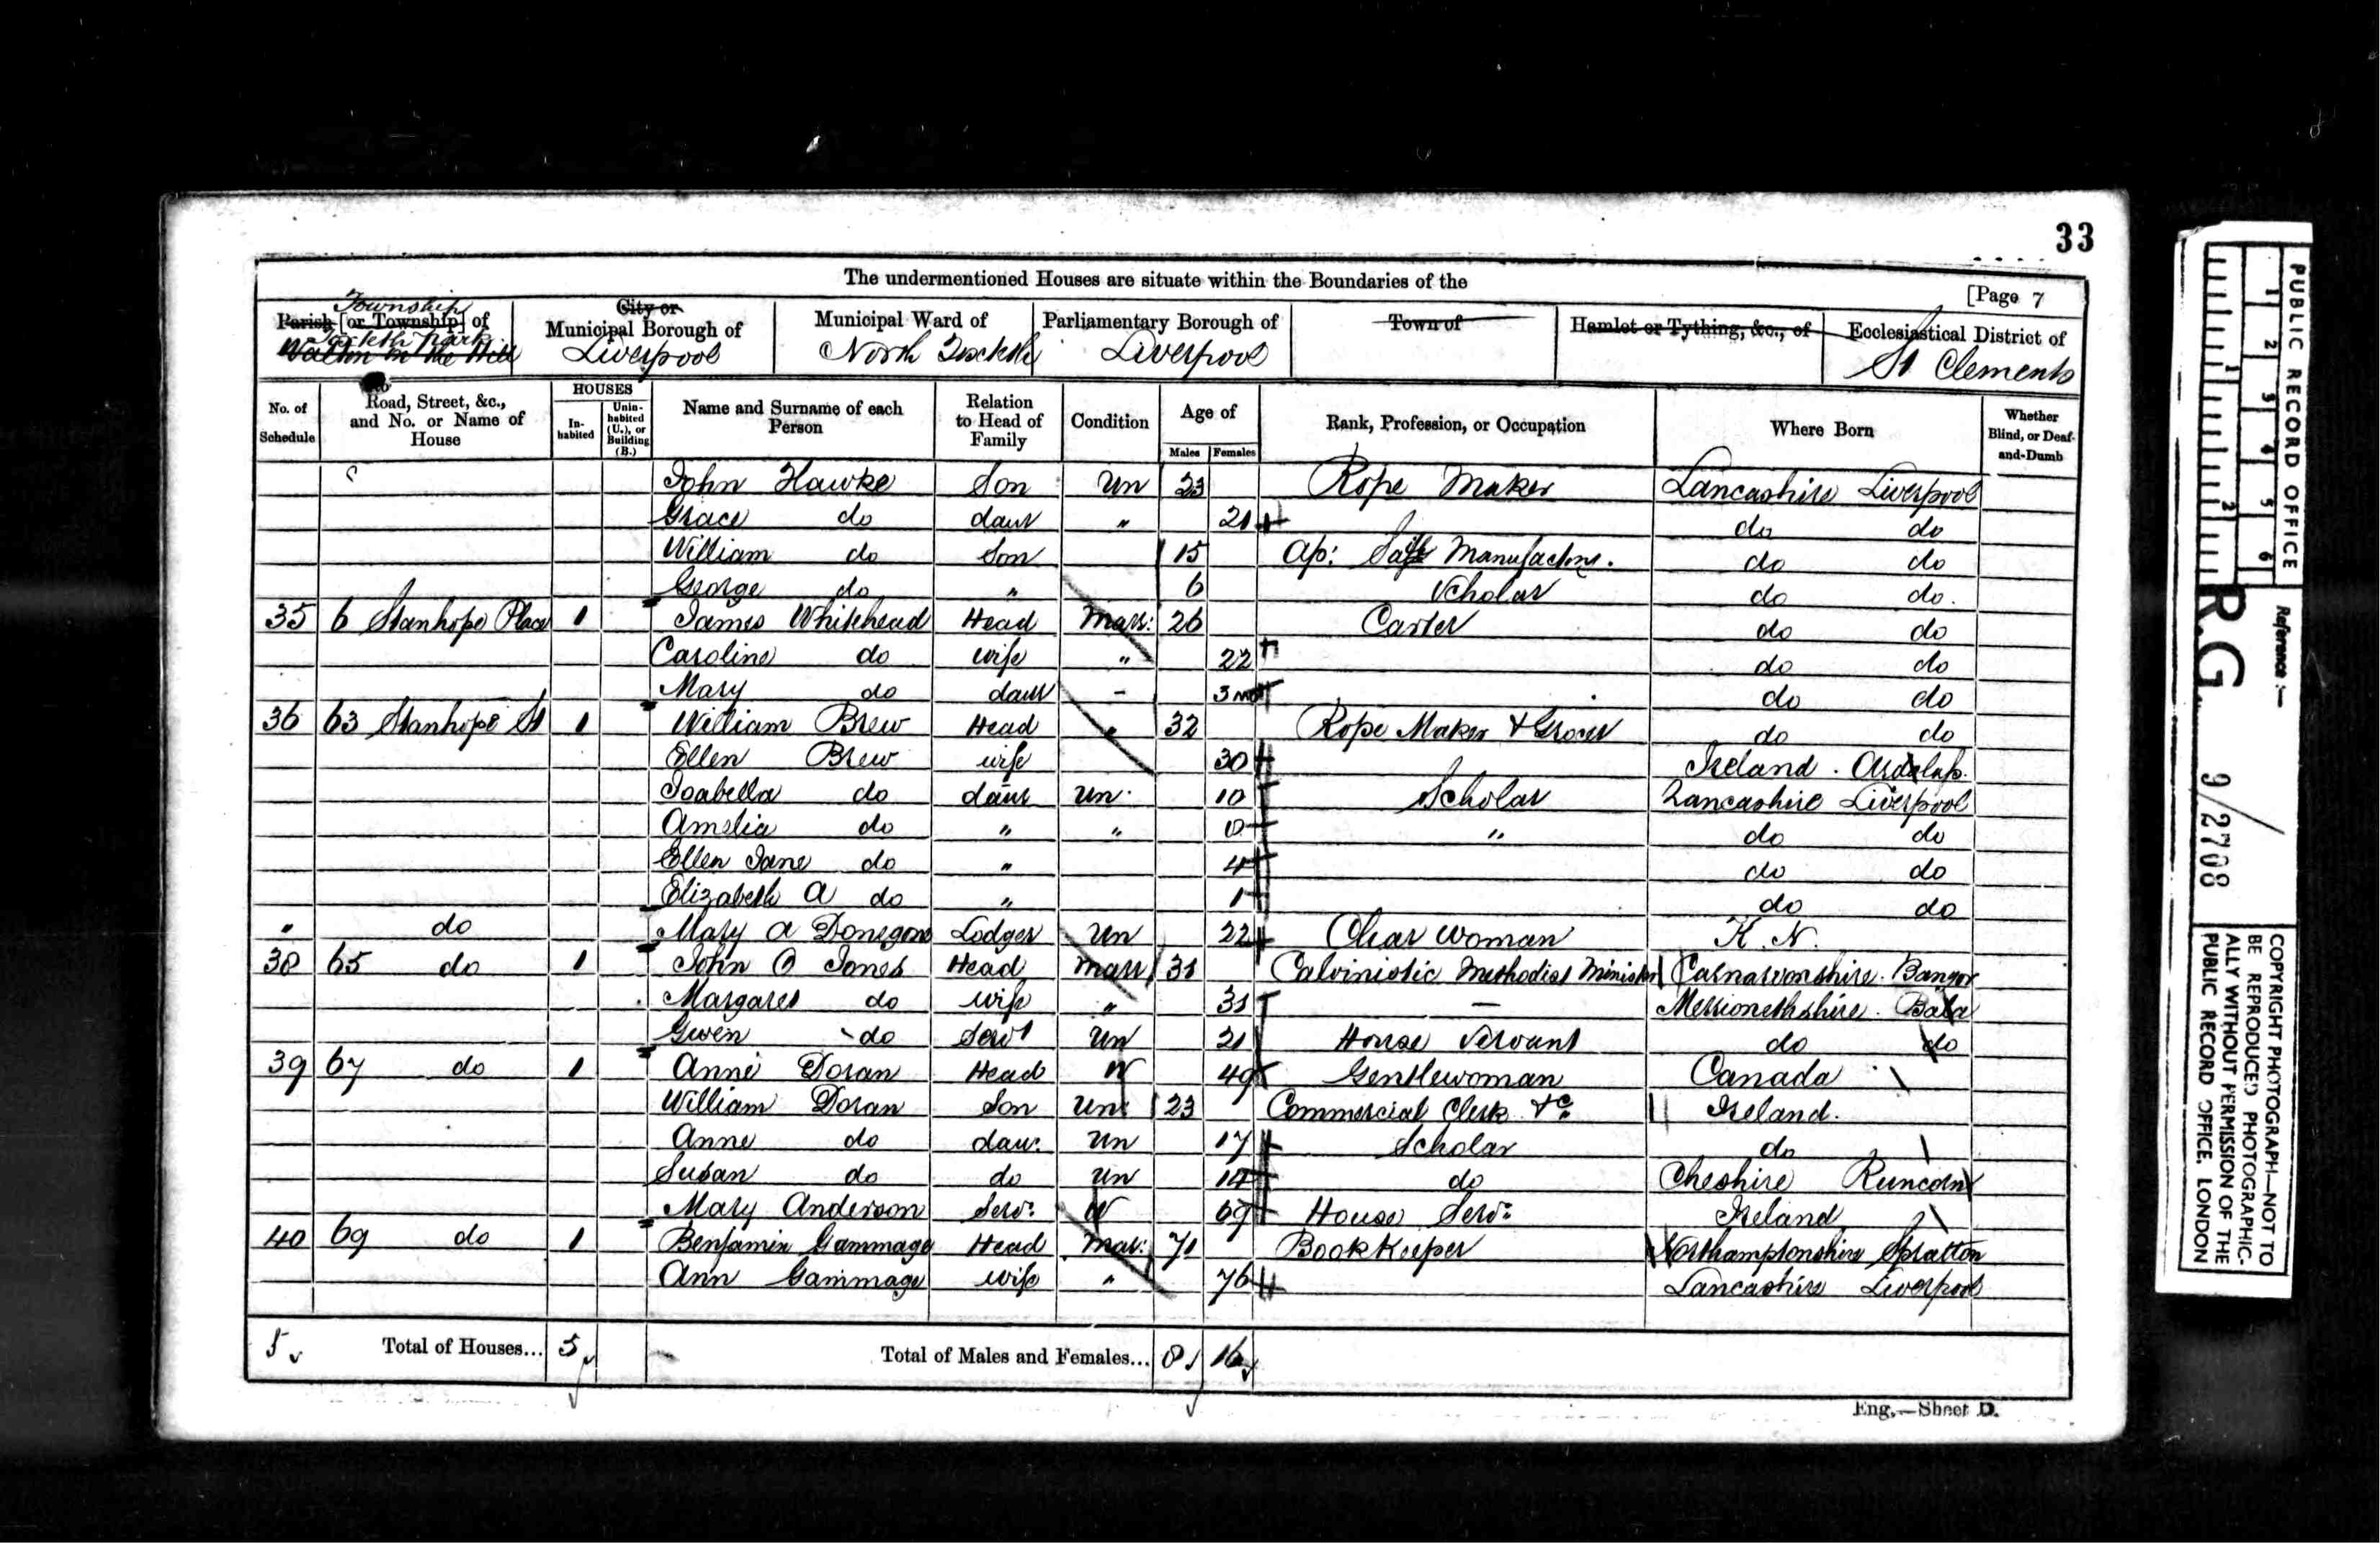 33
The undermentioned Houses are situate within the Boundaries of the
[Page 7
Township
Parish [or Township] of
Toxteth Park
Walton on the Hill
City or
Municipal Borough of
Liverpool
Municipal Ward of
North Toxteth
Parliamentary Borough of
Liverpool
Town of
Hamlet or Tything, &c., of
Ecclesiastical District of
St Clements
No. of Schedule
Road, Street, &c., and No. or Name of House
HOUSES
In-habited
Unin-habited (U.), or Building (B.)
Name and Surname of each Person
Relation to Head of Family
Condition
Age of
Males Females
Rank, Profession, or Occupation
Where Born
Whether Blind, or Deaf-and-Dumb
John Hawke Son Un 23 Rope Maker Lancashire Liverpool
Grace do daur " 21 do do
William do Son 15 Ap: Manufactory. do do
George do " 6 Scholar do do.
35 6 Stanhope Place 1 James Whitehead Head Marr: 26 Carter do do
Caroline do wife " 22 do do
Mary do daur - 3 mo do do
36 63 Stanhope St 1 William Brew Head " 32 Rope Maker & Grocer do do
Ellen Brew wife 30 Ireland.
Isabella do daur Un 10 Scholar Lancashire Liverpool
Amelia do " " 8 " do do
Ellen Jane do " 4 do do
Elizabeth A do " 1 do do
" do Mary A Donegone Lodger Un 22 Char woman K. N.
38 65 do 1 John O Jones Head Marr 31 Calvinistic Methodist Minister Carnarvonshire. Bangor
Margaret do wife " 31 — Merionethshire. Bala
Gwen do Servt Un 21 House Servant do do
39 67 do 1 Anne Doran Head W 49 Gentlewoman Canada
William Doran Son Un: 23 Commercial Clerk &c Ireland.
Anne do daur. Un 17 Scholar do
Susan do do Un 14 do Cheshire Runcorn
Mary Anderson Serv: W 69 House Serv: Ireland
40 69 do 1 Benjamin Gammage Head Mar: 71 Book Keeper Northamptonshire Spratton
Ann Gammage wife " 76 Lancashire Liverpool
5 Total of Houses... 5 Total of Males and Females... 8 16
Eng.—Sheet D.
PUBLIC RECORD OFFICE
1 2 3 4 5 6
1 2
Reference:—
R.G. 9/2708
COPYRIGHT PHOTOGRAPH—NOT TO
BE REPRODUCED PHOTOGRAPHIC-
ALLY WITHOUT PERMISSION OF THE
PUBLIC RECORD OFFICE, LONDON